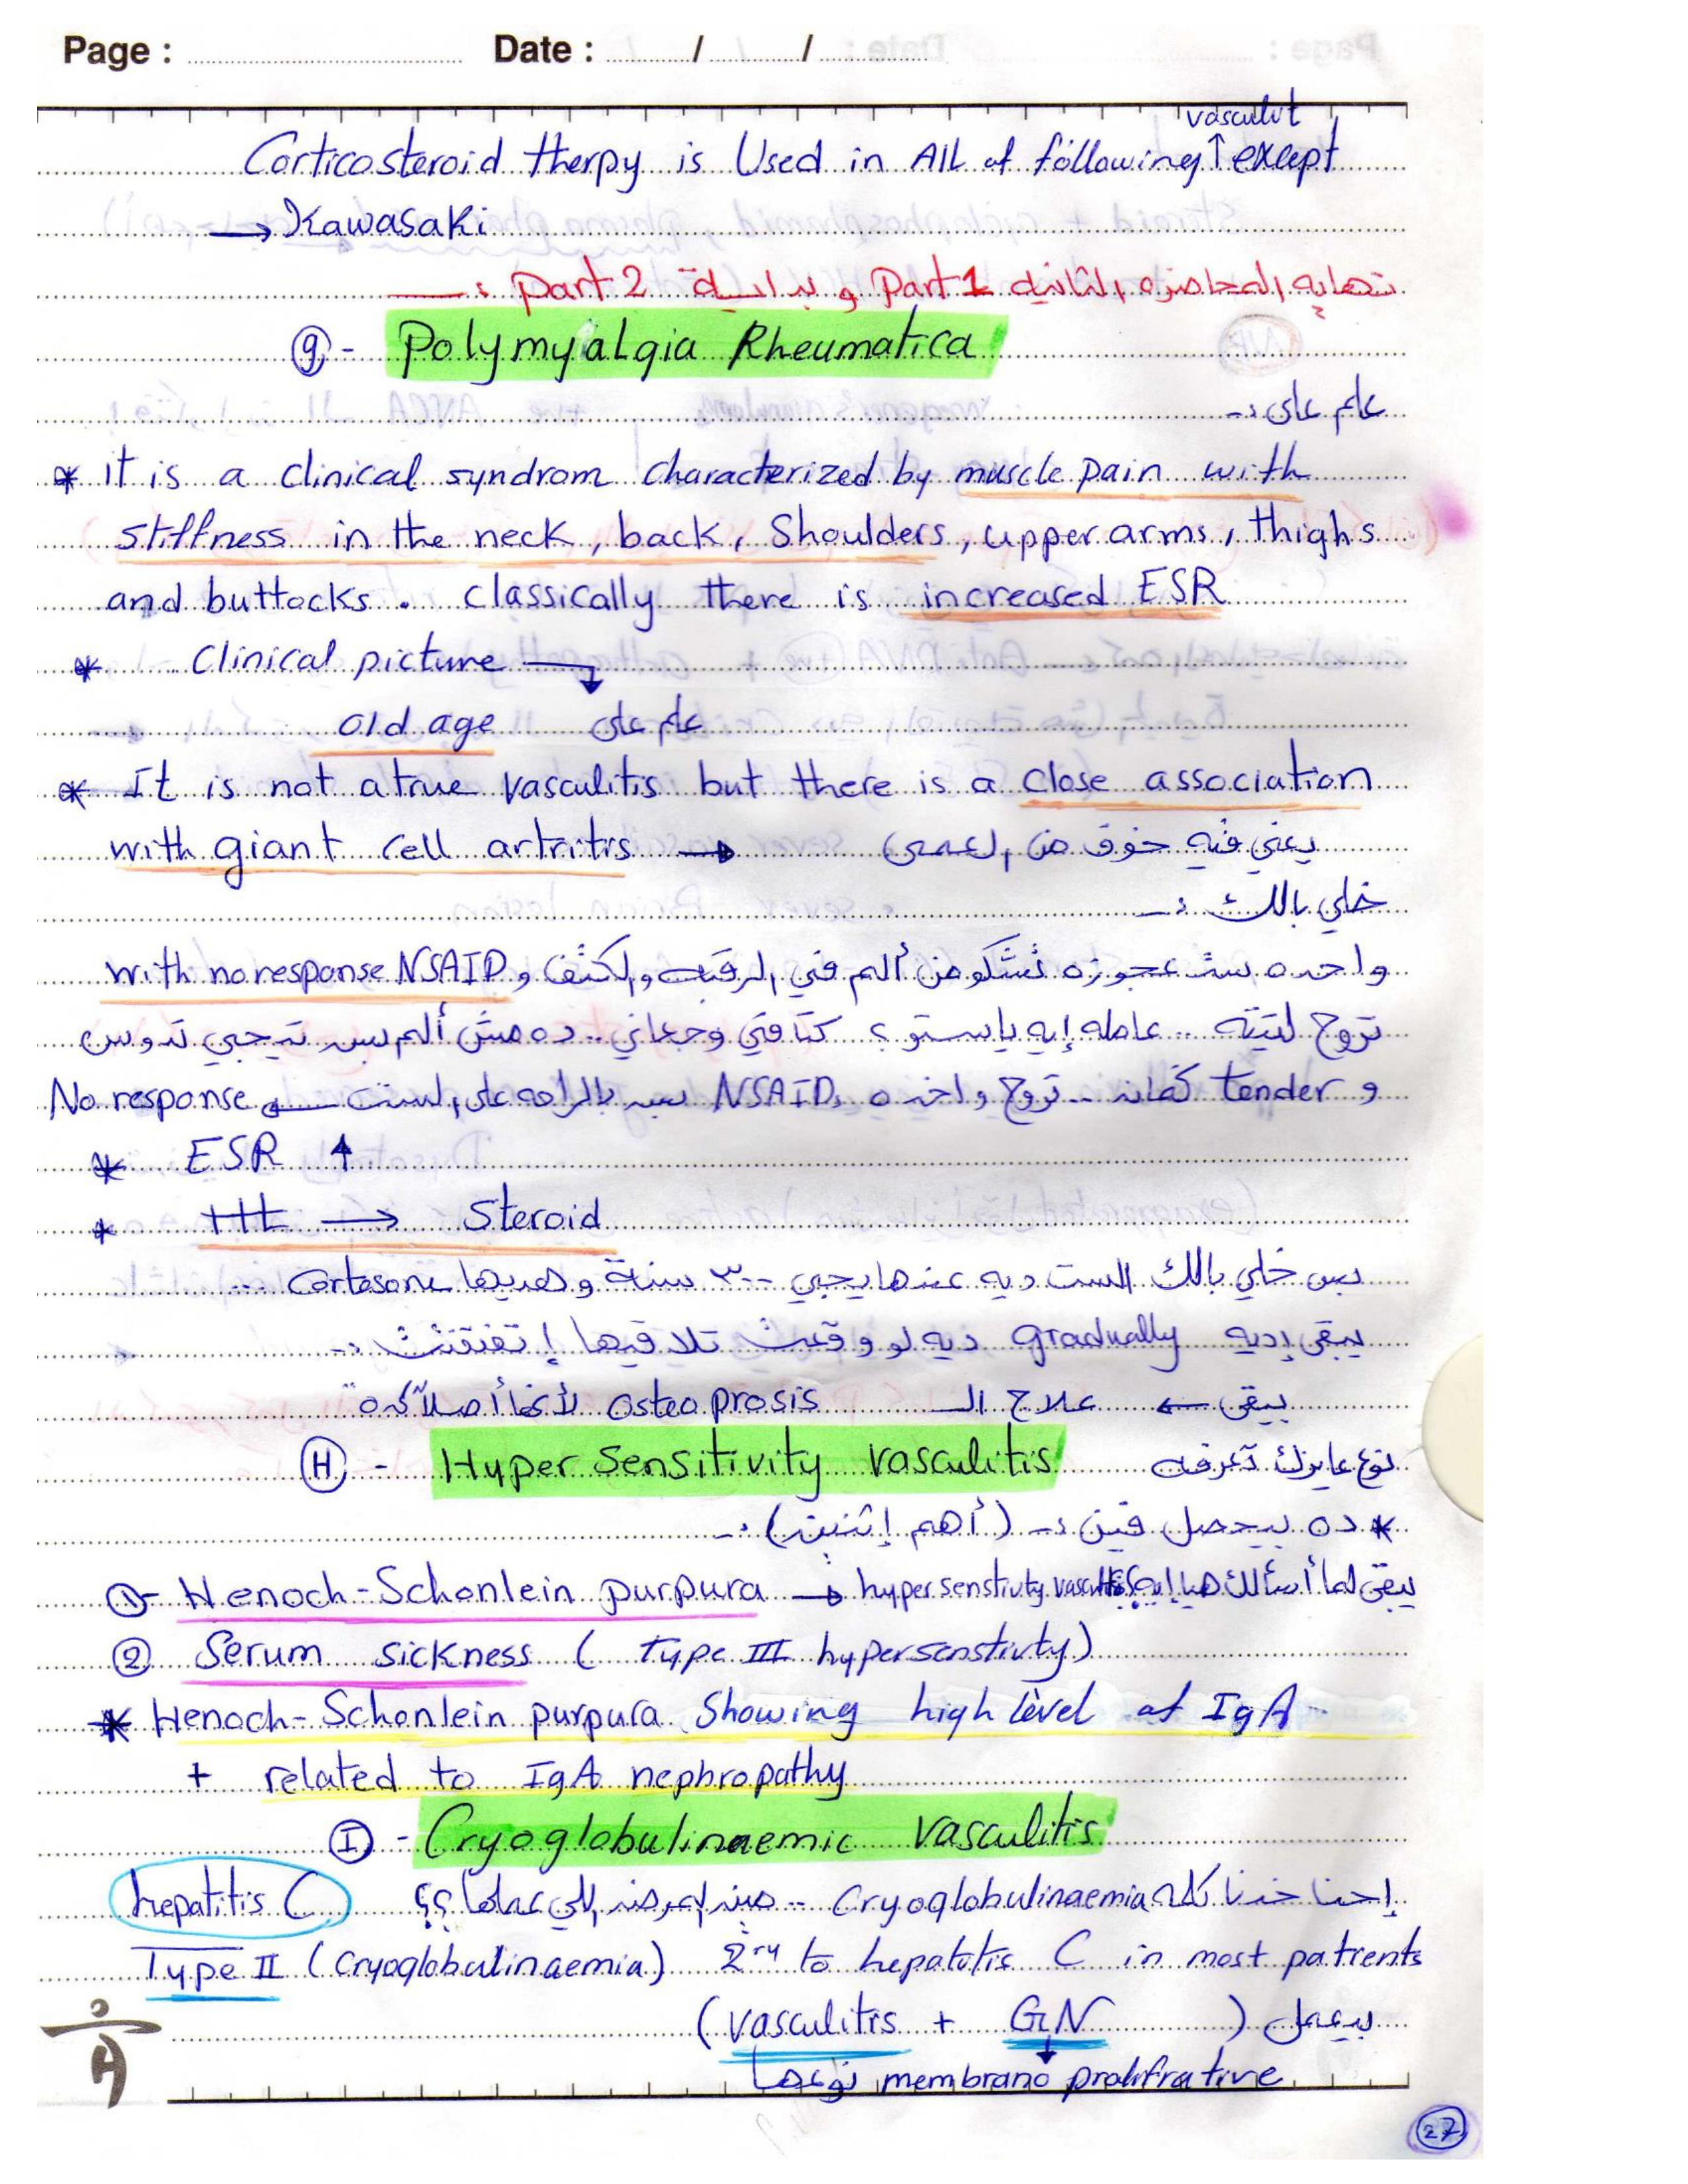 Page : Date : / /
vasculit
Corticosteroid therpy is Used in All of following ↑ except
→ Kawasaki
نهاية المحاضره الثانيه Part 1 و بدايـــة Part 2 :ـ
(g) - Polymyalgia Rheumatica
علم على :-
* it is a clinical syndrom characterized by muscle pain with
stiffness in the neck, back, Shoulders, upper arms, thighs
and buttocks. classically there is increased ESR
* Clinical picture
old age علم على
* It is not a true vasculitis but there is a close association
with giant cell artritis → يعني فيه خوف من العمى
خلي بالك :ـ
واحده ست عجوزه تشكو من ألم في الرقبه والكتف و with no response NSAID
تروح لتيته .. عامله إيه ياستو ؟ كتافي وجعاني .. ده مش ألم بس تيجي تدوس
و tender كمان .. تروح واخده NSAID بس بالراحه على الست ← No response
* ESR ↑
* ttt → Steroid
بس خلي بالك الست ديه عندها يجي ٣٠٠ سنة و هديها Cortosone ...
يبقى إديه gradually ديه لو وقعت تلاقيها إتفتفتت :-
يبقى ← علاج الـ osteoprosis لأنها أصلاً كده
(H) - Hyper Sensitivity vasculitis نوع عايزك تعرفه
* ده بيحصل فين :- (أهم إتنين) :-
①- Henoch-Schonlein purpura → hypersenstivty يبقى لما أسألك
② Serum sickness ( Type III hypersenstivty)
* Henoch-Schonlein purpura Showing high level of IgA
+ related to IgA nephropathy
(I) - Cryoglobulinaemic Vasculitis
إحنا خدنا كلمة Cryoglobulinaemia .. مين المرض إللي عاملها ؟؟ hepatitis C
Type II (Cryoglobulinaemia) 2ry to hepatitis C in most patients
بيعمل ( vasculitis + GN )
نوعها membrano prolifrative
27